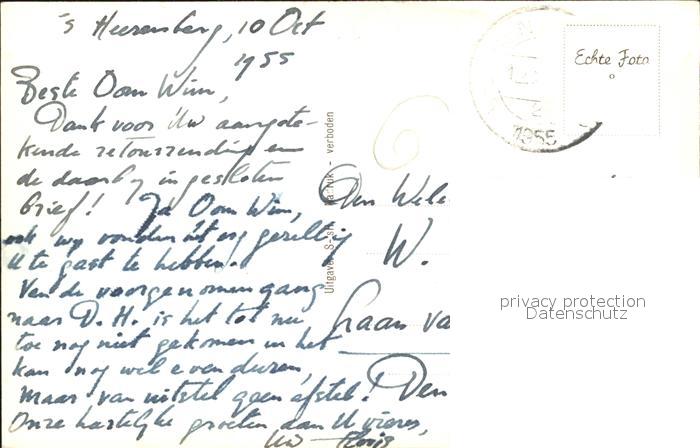 's Heerenberg, 10 Oct
1955
Beste Oom Wim,
Dank voor Uw aangete-
kende retourzending en
de daarby ingesloten
brief! Ja Oom Wim,
ook wy vonden 't erg gezellig
U te gast te hebben.
Van de voorgenomen gang
naar D. H. is het tot nu
toe nog niet gekomen en het
kan nog wel even duren,
maar van uitstel geen afstel!
Onze hartelyke groeten aan U
Uw
Echte Foto
1955
Uitgave: nadruk - verboden
Den Wele
W.
Laan va
Den
privacy protection
Datenschutz